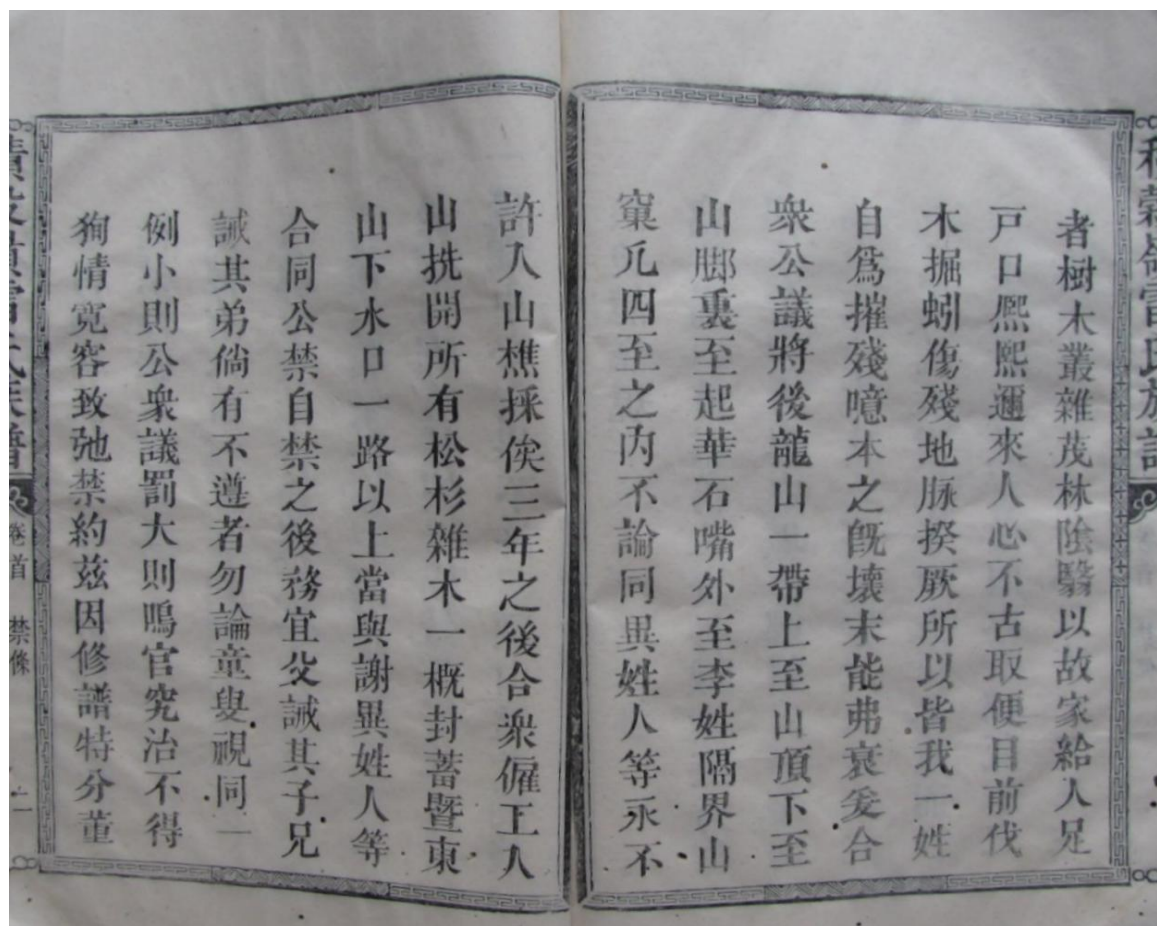 者樹木叢雜茂林陰翳以故家給人足
戸口熈熈邇來人心不古取便目前伐
木掘蚓傷殘地脉揆厥所以皆我一姓
自爲摧殘噫本之旣壞末能弗衰爰合
衆公議將後龍山一帶上至山頂下至
山脚裏至起華石嘴外至李姓隔界山
窠凢四至之内不論同異姓人等永不
許入山樵採俟三年之後合衆僱工人
山挑開所有松杉雜木一概封蓄暨東
山下水口一路以上當與謝異姓人等
合同公禁自禁之後務宜父誡其子兄
誡其弟倘有不遵者勿論童叟視同一
例小則公衆議罰大則鳴官究治不得
狥情寛容致弛禁約兹因修譜特分董
卷首
禁條